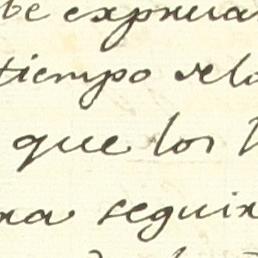 be expresa
tiempo de lo
que los
na seguir